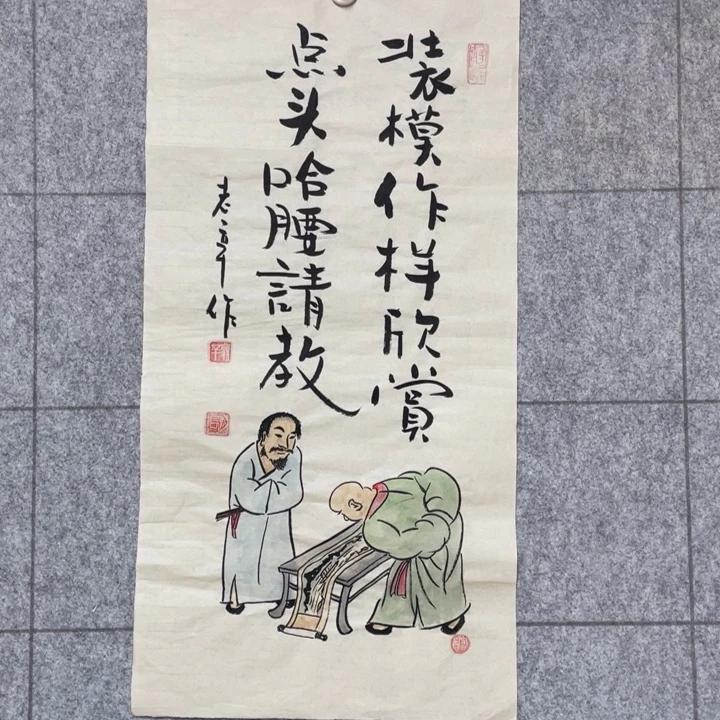 装模作样欣赏
点头哈腰請教
作